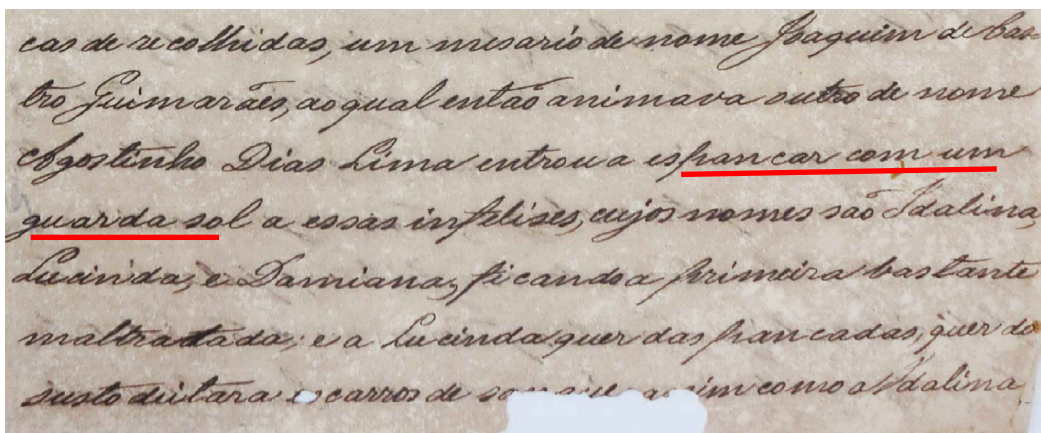 cas de recolhidas, um mesario de nome Joaquim de Cas-
tro Guimarães, ao qual então animava outro de nome
Agostinho Dias Lima entrou a espancar com um
guarda sol a essas infelises, cujos nomes são Idalina,
Lucinda, e Damiana, ficando a primeira bastante
maltratada, e a Lucinda quer das pancadas, quer do
susto deitara escarros de sangue assim como a Idalina